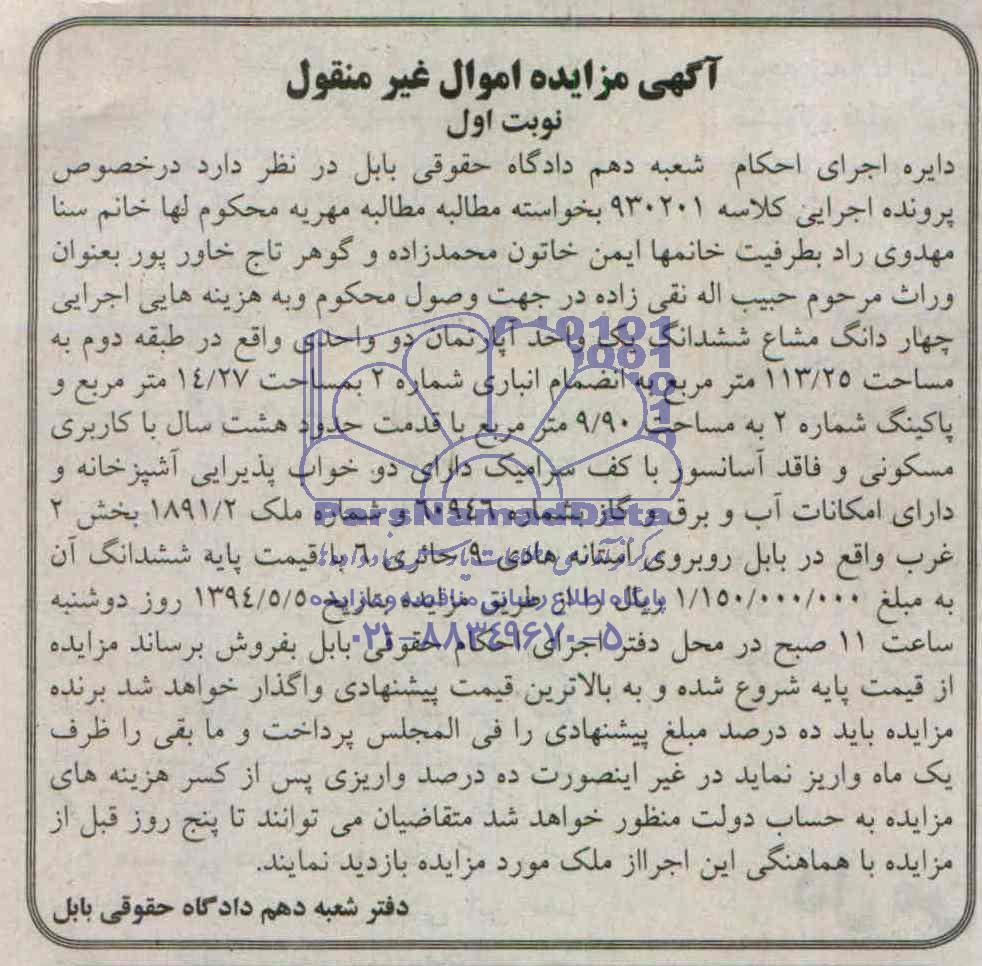 آگهی مزایده اموال غیر منقول
نوبت اول
دایره اجرای احکام شعبه دهم دادگاه حقوقی بابل در نظر دارد درخصوص
پرونده اجرایی کلاسه ۹۳۰۲۰۱ بخواسته مطالبه مطالبه مهریه محکوم لها خانم سنا
مهدوی راد بطرفیت خانمها ایمن خاتون محمدزاده و گوهر تاج خاور پور بعنوان
وراث مرحوم حبیب اله نقی زاده در جهت وصول محکوم وبه هزینه هایی اجرایی
چهار دانگ مشاع ششدانگ یک واحد آپارتمان دو واحدی واقع در طبقه دوم به
مساحت ۱۱۳/۲۵ متر مربع به انضمام انباری شماره ۲ بمساحت ۱٤/۲۷ متر مربع و
پاکینگ شماره ۲ به مساحت ۹/۹۰ متر مربع با قدمت حدود هشت سال با کاربری
مسکونی و فاقد آسانسور با کف سرامیک دارای دو خواب پذیرایی آشپزخانه و
دارای امکانات آب و برق و گاز بشماره ٦۰۹٤٦ و شماره ملک ۱۸۹۱/۲ بخش ۲
غرب واقع در بابل روبروی استانه هادی ۹ حائری ٦ با قیمت پایه ششدانگ آن
به مبلغ ۱/۱۵۰/۰۰۰/۰۰۰ ریال را از طریق مزایده بتاریخ ۱۳۹٤/۵/۵ روز دوشنبه
ساعت ۱۱ صبح در محل دفتر اجرای احکام حقوقی بابل بفروش برساند مزایده
از قیمت پایه شروع شده و به بالاترین قیمت پیشنهادی واگذار خواهد شد برنده
مزایده باید ده درصد مبلغ پیشنهادی را فی المجلس پرداخت و ما بقی را ظرف
یک ماه واریز نماید در غیر اینصورت ده درصد واریزی پس از کسر هزینه های
مزایده به حساب دولت منظور خواهد شد متقاضیان می توانند تا پنج روز قبل از
مزایده با هماهنگی این اجرااز ملک مورد مزایده بازدید نمایند.
دفتر شعبه دهم دادگاه حقوقی بابل
ParsNamadData
پایگاه اطلاع رسانی مناقصه و مزایده
۰۲۱-۸۸۳۴۹۶۷۰-۵